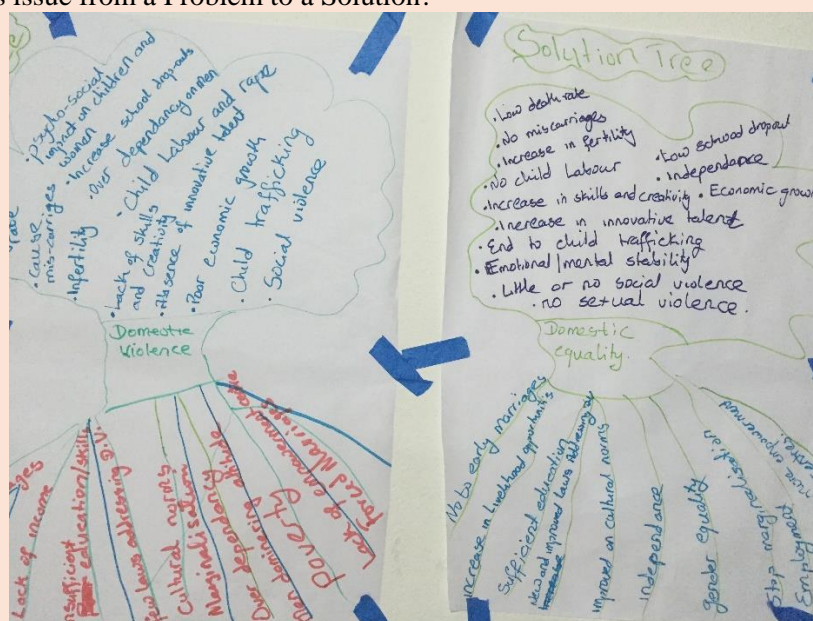 s issue from a Problem to a Solution?
psycho-social
impact on children and
women
Increase school drop-outs
Over dependancy on men
Child Labour and rape
cause
mis-carriges
Infertility
Lack of skills
and creativity
Absence of innovative talent
Poor economic growth
Child trafficking
Social violence
Domestic
violence
Lack of income
insufficient
education/skills
Few laws addressing D.V.
Cultural norms
Marginalisation
Over dependency
Men domineering
Poverty
Lack of empowerment
Forced Marriages
Solution Tree
Low death rate
No miscarriages
Increase in fertility
No child Labour
Low school dropout
Independance
Increase in skills and creativity
Economic grow
Increase in innovative talent
End to child trafficking
Emotional/mental stability
Little or no social violence
no sexual violence.
Domestic
equality.
No to early marriages
Increase in Livelihood opportunities
Sufficient education
New and improved laws Addressing
improved on cultural norms
independance
gender equality
Stop marginalisation
Employment